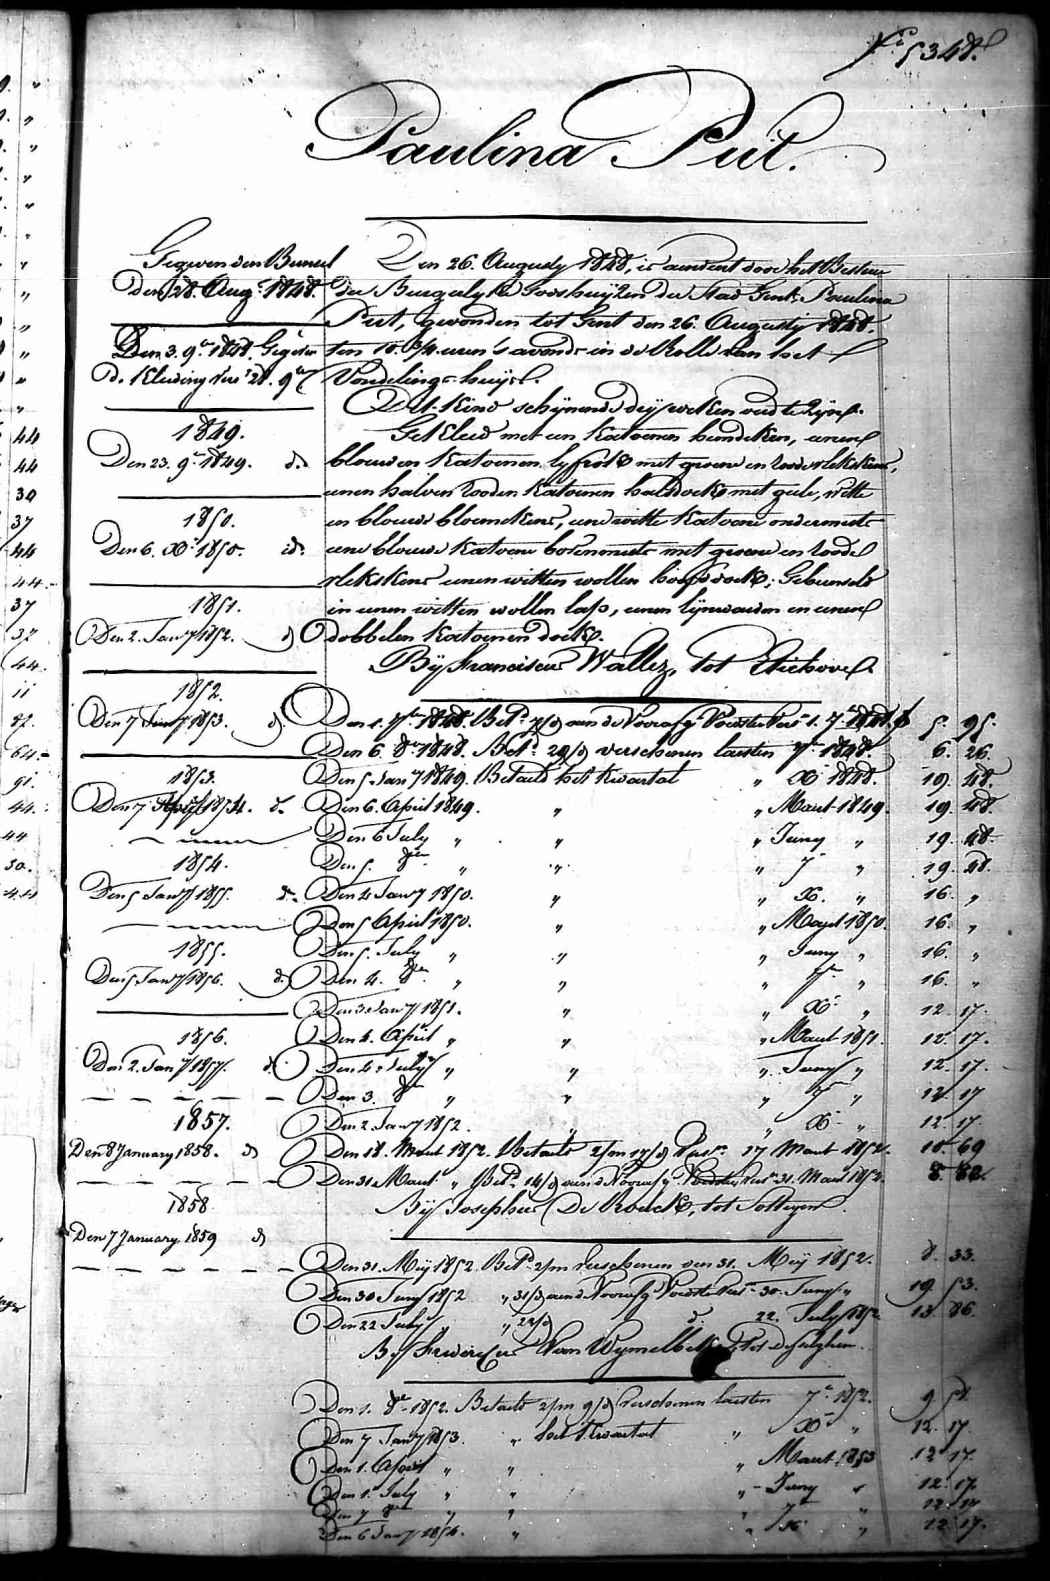 N.º 5348.
Paulina Put.
Gegeven den Bunsel
den 28. Aug.t 1848.
Den 3. 9.r 1848. Gegeven
de Kleeding
1849.
Den 23. 9.r 1849. d.o
1850.
Den 6. X.r 1850. id.
1851.
Den 2. Jan.y 1852. d.o
1852.
Den 7 Jan.y 1853. d.o
1853.
Den 7 1854. d.o
1854.
Den 5 Jan.y 1855. d.o
1855.
Den 5 Jan.y 1856. d.o
1856.
Den 2. Jan.y 1857. d.o
1857.
Den 8 January 1858. d.o
1858
Den 7 January 1859 d.o
Den 26. Augusty 1848, is aenveird door het Bestuer
der Burgerlyke Godshuyzen der Stad Gent: Paulina
Put, gevonden tot Gent den 26. Augusty 1848.
ten 10. 3/4. uren 's avonds in de Rolle van het
Vondelings-huys.
Dit Kind schynende dry weken oud te zyn.
Gekleed met een katoenen hemdeken, eenen
blauwen katoenen lyfrok met groene en roode vlekskens,
eenen halven rooden katoenen halsdoek met gele, witte
en blauwe bloemekens, eene witte katoene ondermuts
eene blauwe katoene bovenmuts met groene en roode
vlekskens eenen witten wollen hoofddoek; Gebunseld
in eenen witten wollen lap, eenen lynwaeden en eenen
dobbelen katoenen doek.
By Franciscus Wallez, tot Etichove.
Den 1. 7.r 1848. Bet.d 7/d aen de Voorafg. Voedster 1. 7.r 1848. 5. 95.
Den 6 8.r 1848. Bet.d verschenen laesten 7.r 1848. 6. 26.
Den 5 Jan.y 1849. Betaeld het kwartael " X.r 1848. 19. 48.
Den 6. April 1849. " " Maert 1849. 19. 48.
Den 6 July " " " Juny " 19. 48.
Den 5. 8.r " " " 7.r " 19. 48.
Den 4 Jan.y 1850. " " X. " 16. "
Den 5 April 1850. " " Maert 1850. 16. "
Den 5. July " " " Juny " 16. "
Den 4. 8.r " " " 7.r " 16. "
Den 3 Jan.y 1851. " " X.r " 12. 17.
Den 4. April " " " Maert 1851. 12. 17.
Den 4. July " " " Juny " 12. 17.
Den 3. 8.r " " " 7.r " 12. 17
Den 2 Jan.y 1852. " " X.r " 12. 17.
Den 18. Maert 1852. Betaeld 2/m 17/d 17 Maert 1852. 10. 69
Den 31 Maert " Bet.d 14/d aen de Voorafg. Voedster 31. Maert 1852.
By Josephus De Vrouck, tot Sottegem.
Den 31. Mey 1852. Bet.d 2/m verschenen den 31. Mey 1852. 8. 33.
Den 30 Juny 1852 " 31/d aen de Voorafg. Voedster 30. Juny " 19. 53.
Den 22 July " " 22/d d.o 22. July 1852 13. 86
By Van Wymelbeke, tot
Den 1. 8.r 1852. Betaeld 2/m 9/d verschenen laesten 7.r 1852. 9. 51.
Den 7 Jan.y 1853. " het kwartael " X.r " 12. 17.
Den 1. April " " " Maert 1853 12 17.
Den 1. July " " " Juny " 12. 17.
Den 7 8.r " " " 7.r " 12. 17
Den 6 Jan.y 1854. " " X.r " 12. 17.